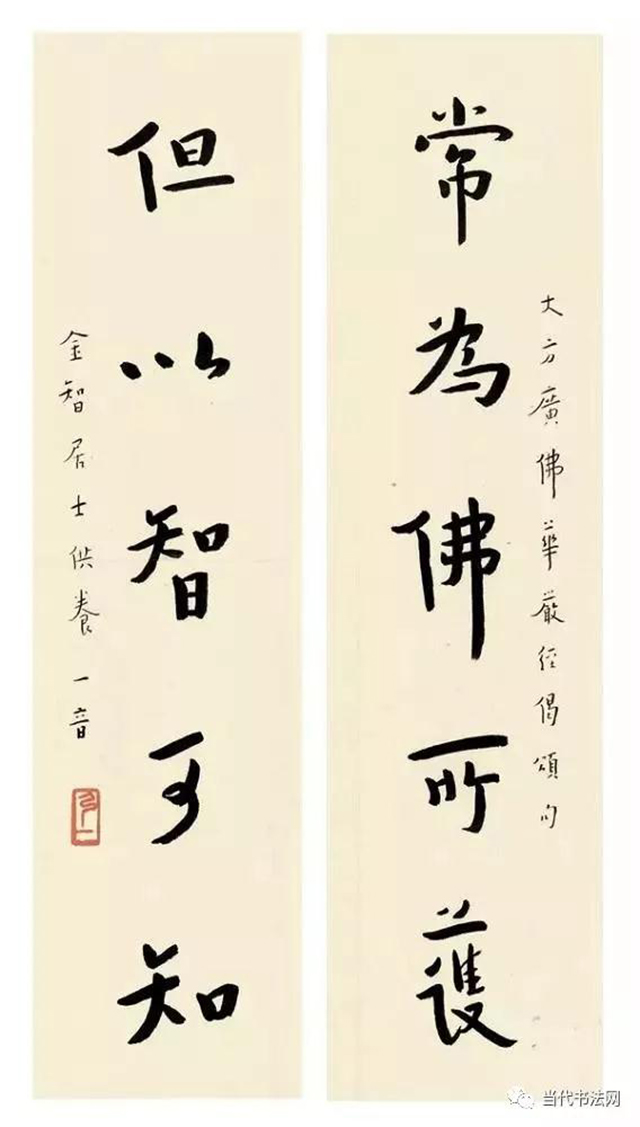 大方廣佛華嚴經偈頌句
常為佛所護
但以智可知
金智居士供養一音
当代书法网